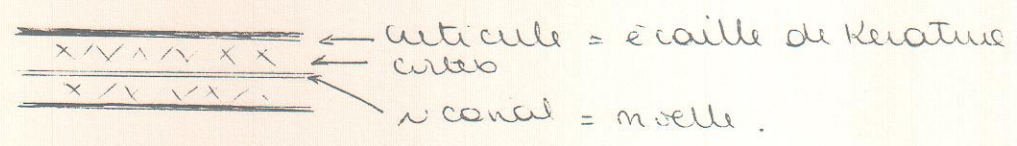 cuticule = écaille de Keratine
cortex
canal = moelle.